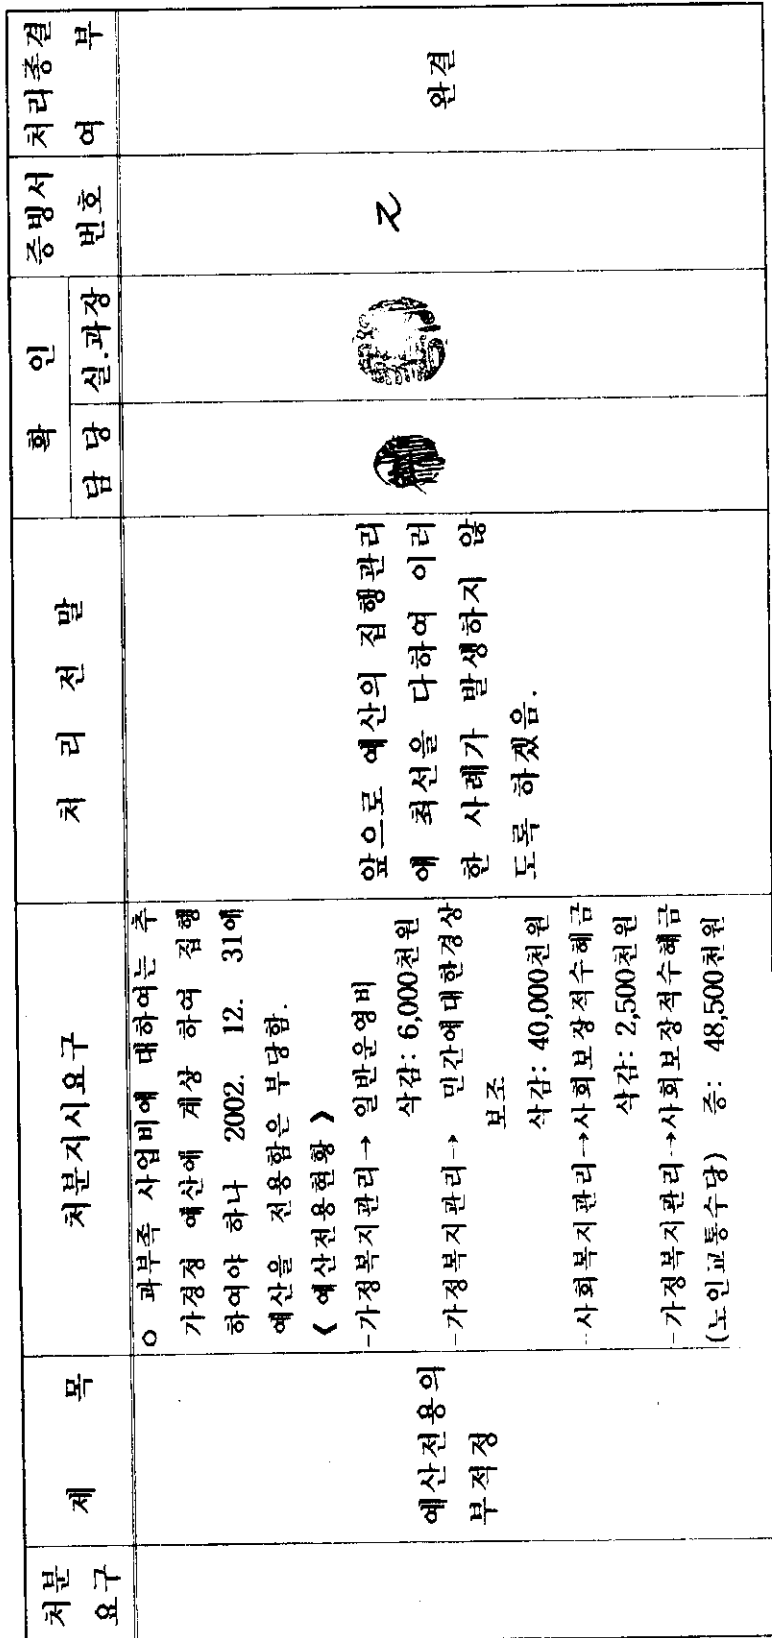 처분
요구
제 목
처분지시요구
처 리 전 말
확 인
담 당
실.과장
증빙서
번호
처리종결
여 부
예산전용의
부적정
o 과부족 사업비에 대하여는 추
가경정 예산에 계상 하여 집행
하여야 하나 2002. 12. 31에
예산을 전용함은 부당함.
《 예산전용현황 》
-가정복지관리→ 일반운영비
삭감: 6,000천원
-가정복지관리→ 민간에대한경상
보조
삭감: 40,000천원
-사회복지관리→사회보장적수혜금
삭감: 2,500천원
-가정복지관리→사회보장적수혜금
(노인교통수당) 증: 48,500천원
앞으로 예산의 집행관리
에 최선을 다하여 이러
한 사례가 발생하지 않
도록 하겠음.
완결